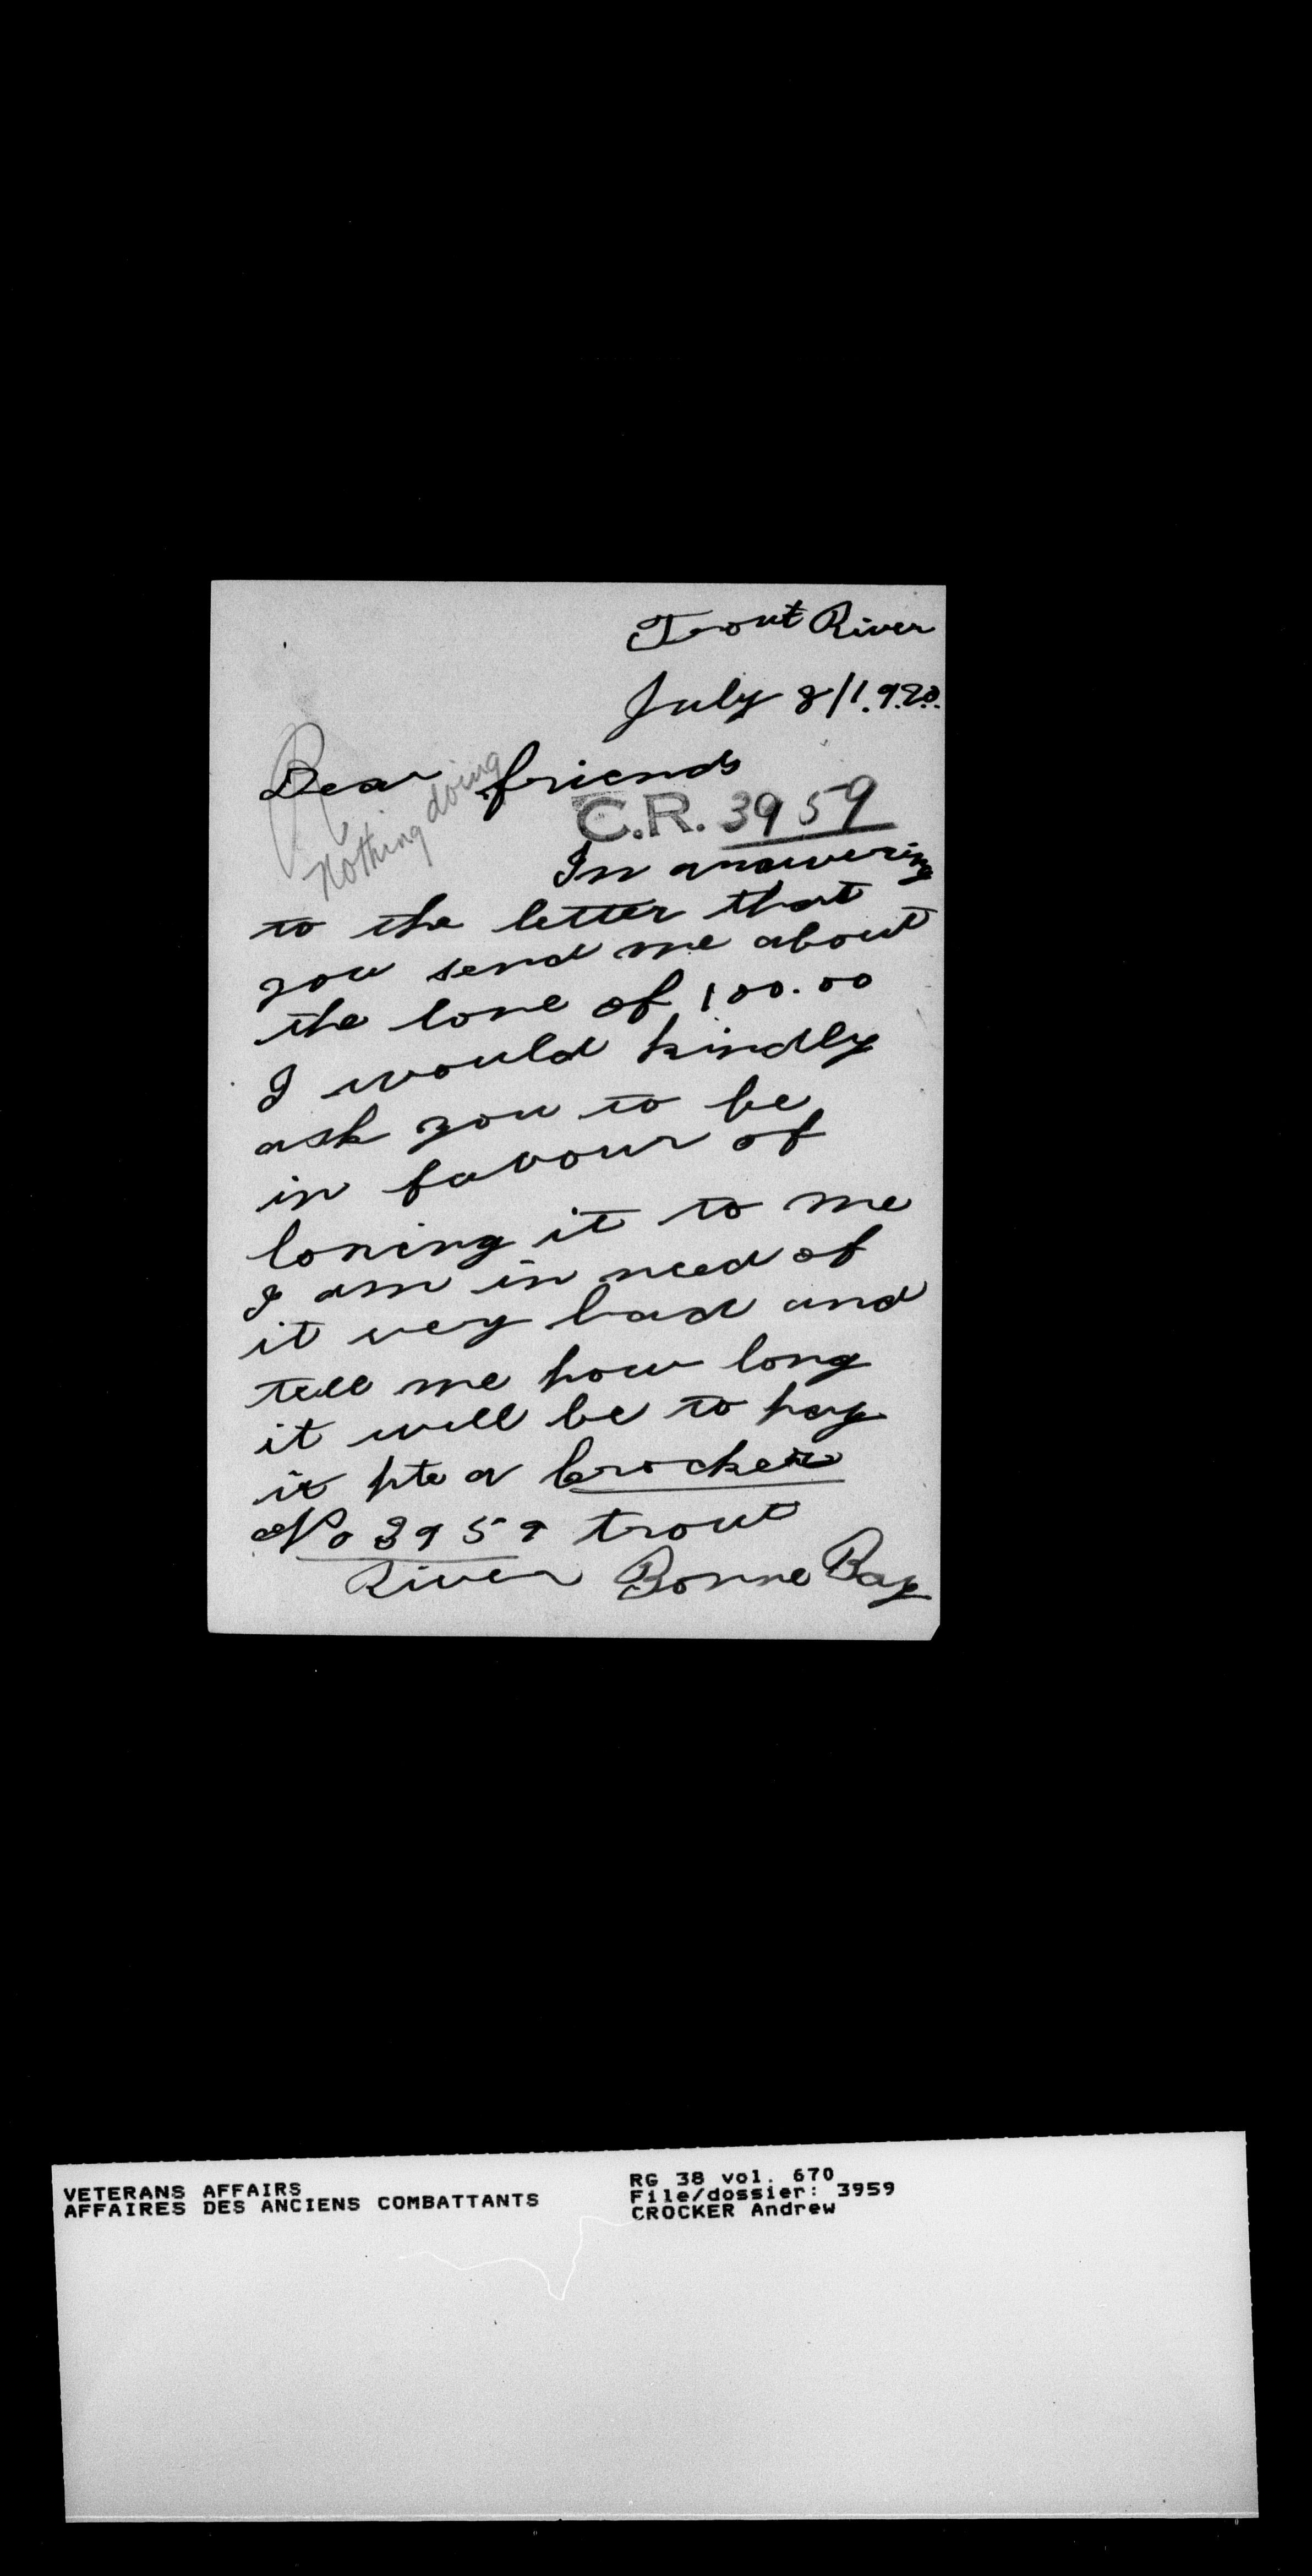 Trout River
July 8/1.9.20.
Dear friends
nothing doing
C.R. 3959
In answering
to the letter that
you send me about
the lone of 100.00
I would kindly
ask you to be
in favour of
loning it to me
I am in need of
it very bad and
tell me how long
it will be to pay
it pte a Crocker
No 3959 trout
River Bonne Bay
VETERANS AFFAIRS
AFFAIRES DES ANCIENS COMBATTANTS
RG 38 vol. 670
File/dossier: 3959
CROCKER Andrew